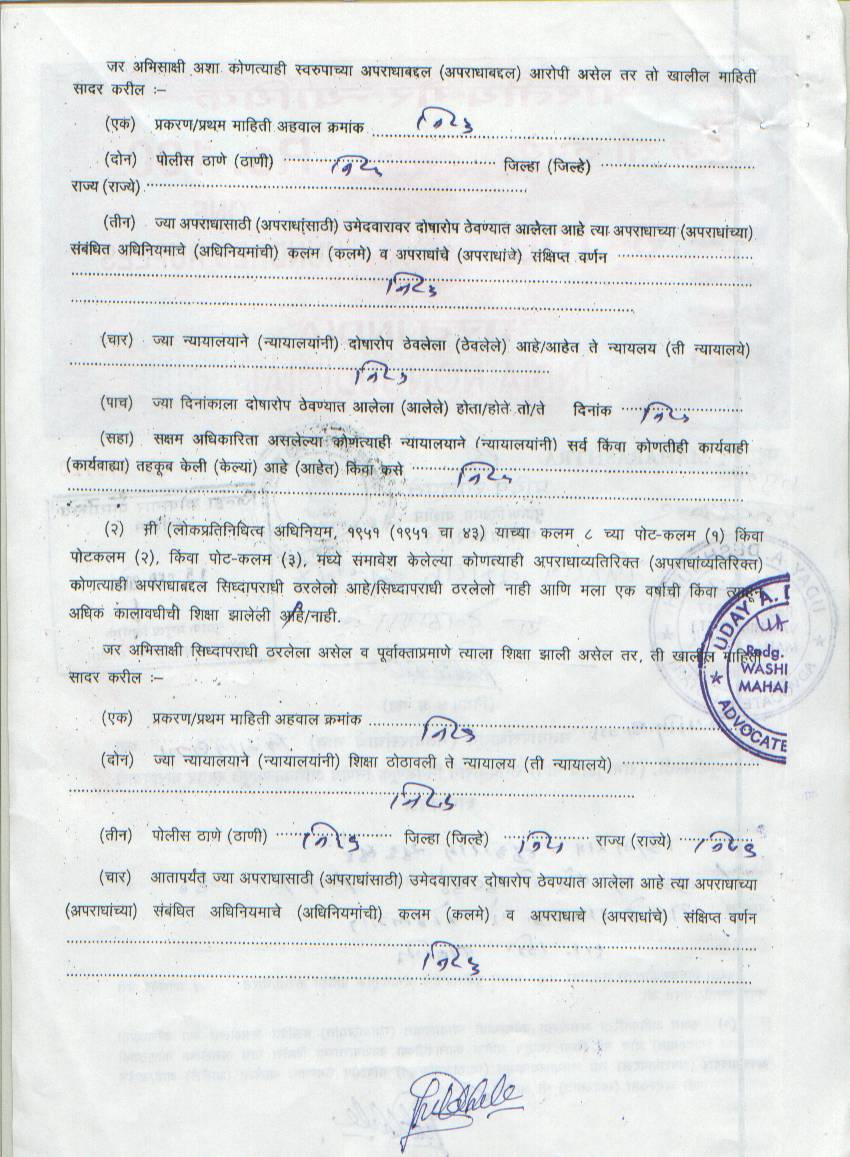 जर अभिसाक्षी अशा कोणत्याही स्वरुपाच्या अपराधाबद्दल (अपराधाबद्दल) आरोपी असेल तर तो खालील माहिती
सादर करील :–
(एक) प्रकरण/प्रथम माहिती अहवाल क्रमांक निरंक
(दोन) पोलीस ठाणे (ठाणी) निरंक जिल्हा (जिल्हे)
राज्य (राज्ये)
(तीन) ज्या अपराधासाठी (अपराधांसाठी) उमेदवारावर दोषारोप ठेवण्यात आलेला आहे त्या अपराधाच्या (अपराधांच्या)
संबंधित अधिनियमाचे (अधिनियमांची) कलम (कलमे) व अपराधांचे (अपराधांचे) संक्षिप्त वर्णन
निरंक
(चार) ज्या न्यायालयाने (न्यायालयांनी) दोषारोप ठेवलेला (ठेवलेले) आहे/आहेत ते न्यायलय (ती न्यायालये)
निरंक
(पाच) ज्या दिनांकाला दोषारोप ठेवण्यात आलेला (आलेले) होता/होते तो/ते दिनांक निरंक
(सहा) सक्षम अधिकारिता असलेल्या कोणत्याही न्यायालयाने (न्यायालयांनी) सर्व किंवा कोणतीही कार्यवाही
(कार्यवाह्या) तहकूब केली (केल्या) आहे (आहेत) किंवा कसे निरंक
(२) मी (लोकप्रतिनिधित्व अधिनियम, १९५१ (१९५१ चा ४३) याच्या कलम ८ च्या पोट-कलम (१) किंवा
पोटकलम (२), किंवा पोट-कलम (३), मध्ये समावेश केलेल्या कोणत्याही अपराधाव्यतिरिक्त (अपराधांव्यतिरिक्त)
कोणत्याही अपराधाबद्दल सिध्दापराधी ठरलेलो आहे/सिध्दापराधी ठरलेलो नाही आणि मला एक वर्षाची किंवा त्याहून
अधिक कालावधीची शिक्षा झालेली आहे/नाही.
जर अभिसाक्षी सिध्दापराधी ठरलेला असेल व पूर्वोक्ताप्रमाणे त्याला शिक्षा झाली असेल तर, ती खालील माहिती
सादर करील :–
UDAY A.
Redg.
WASHI
MAHAI
ADVOCATE
(एक) प्रकरण/प्रथम माहिती अहवाल क्रमांक निरंक
(दोन) ज्या न्यायालयाने (न्यायालयांनी) शिक्षा ठोठावली ते न्यायालय (ती न्यायालये)
निरंक
(तीन) पोलीस ठाणे (ठाणी) निरंक जिल्हा (जिल्हे) निरंक राज्य (राज्ये) निरंक
(चार) आतापर्यंत ज्या अपराधासाठी (अपराधांसाठी) उमेदवारावर दोषारोप ठेवण्यात आलेला आहे त्या अपराधाच्या
(अपराधांच्या) संबंधित अधिनियमाचे (अधिनियमांची) कलम (कलमे) व अपराधाचे (अपराधांचे) संक्षिप्त वर्णन
निरंक